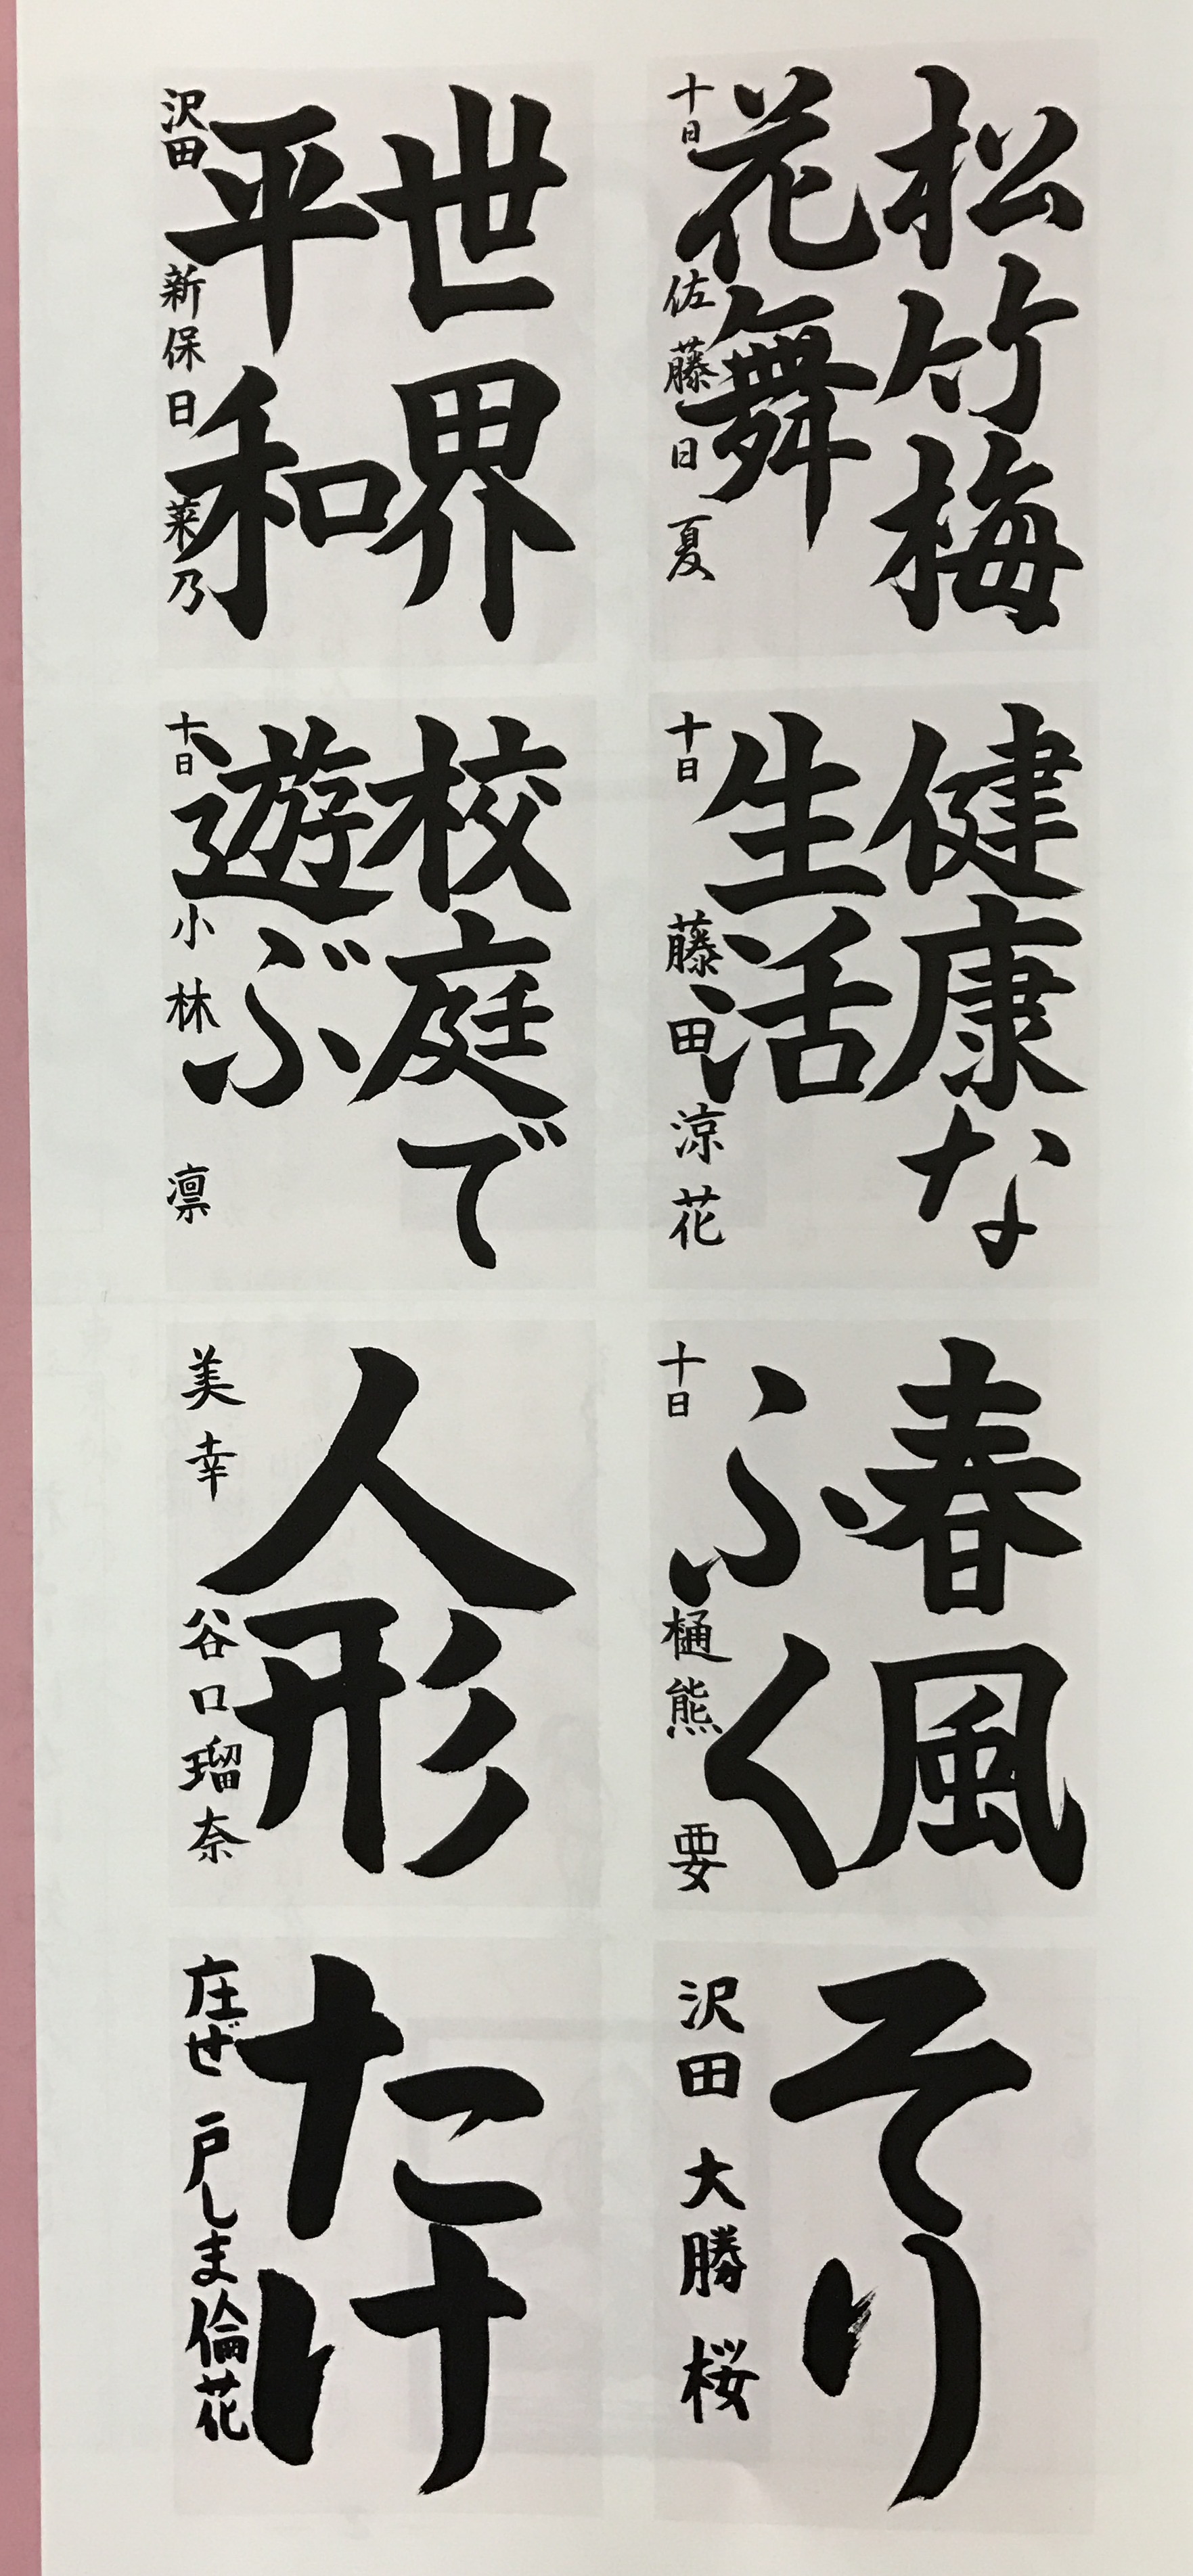 松竹梅
花舞
十日 佐藤日夏
世界
平和
沢田 新保日菜乃
健康な
生活
十日 藤田涼花
校庭で
遊ぶ
十日 小林凛
春風
ふく
十日 樋熊要
人形
美幸 谷口瑠奈
そり
沢田 大勝桜
たけ
庄ぜ 戸しま倫花